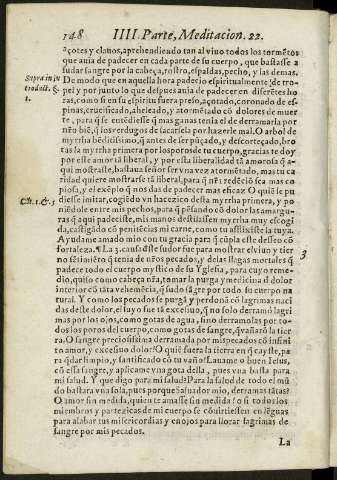 148 IIII. Parte, Meditacion. 22.
açotes y clauos, aprehendiendo tan al viuo todos los tormētos
que auia de padecer en cada parte de su cuerpo, que bastasse a
sudar sangre por la cabeça, rostro, espaldas, pecho, y las demas.
Supra in in
troduct. §.
1.
De modo que en aquella hora padecio espiritualmēte de tro-
pel y por junto lo que despues auia de padecer en diferētes ho
ras, como si en su espiritu fuera preso, açotado, coronado de es-
pinas, crucificado, aheleado, y atormētado cō dolores de muer
te, para q̄ se entēdiesse q̄ mas ganas tenia el de derramarla por
nro biē, q̄ los verdugos de sacarsela por hazerle mal. O arbol de
myrrha bēditissimo, q̄ antes de ser pūçado, y descorteçado, bro
tas la myrrha primera por los poros de tu cuerpo, gracias te doy
por este amor tā liberal, y por esta liberalidad tā amorosa q̄ a-
qui mostraste, bastaua señor ser vna vez atormētado, mas tu ca
ridad quiere mostrarse tā liberal, para q̄ nrā redēciō sea mas co
piosa, y el exēplo q̄ nos das de padecer mas eficaz. O quiē te pu
Cāt. 1. & 5
diesse imitar, cogiēdo vn hazezico desta myrrha primera, y po
niēdole entre mis pechos, para q̄ pēsando cō dolor las amargu-
ras q̄ aqui padeciste, mis manos destilassen myrrha muy escogi
da, castigādo cō penitēcias mi carne, como tu afligiste la tuya.
Ayudame amado mio con tu gracia para q̄ cūpla este desseo cō
fortaleza. ¶ La 3. causa deste sudor fue para mostrar el viuo y tier
3
no sētimiēto q̄ tenia de nros pecados, y de las llagas mortales q̄
padece todo el cuerpo mystico de su Yglesia, para cuyo reme-
dio, quiso como cabeça nrā, tomar la purga y medicina dl dolor
interior cō tāta vehemēcia, q̄ sudo sāgre por todo su cuerpo na
tural. Y como los pecados se purgā y perdonā cō lagrimas naci
das deste dolor, el suyo fue tā excessiuo, q̄ no solo derramò lagri
mas por los ojos, como gotas de agua, sino derramolas por to-
dos los poros del cuerpo, como gotas de sangre, q̄ vañarō la tier
ra. O sangre preciosissima derramada por mis pecados cō infini
to amor, y excessiuo dolor! O quiē fuera la tierra en q̄ cayste, pa
ra q̄dar limpio, y santificado cō tu vaño! Lauame o buen Iesus,
cō essa sangre, y aplicame vna gota della, pues vna basta para
mi salud. Y que digo para mi salud? Para la salud de todo el mū
do bastara vna sola, pues porque saluador mio, derramas tātas?
O amor sin medida, quien te amasse sin medida! o si todos los
miembros y partezicas de mi cuerpo se cōuirtiessen en lēguas
para alabar tus misericordias y en ojos para llorar lagrimas de
sangre por mis pecados.
La